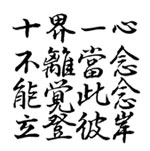 十界一心
不離當念
能覺此念
立登彼岸